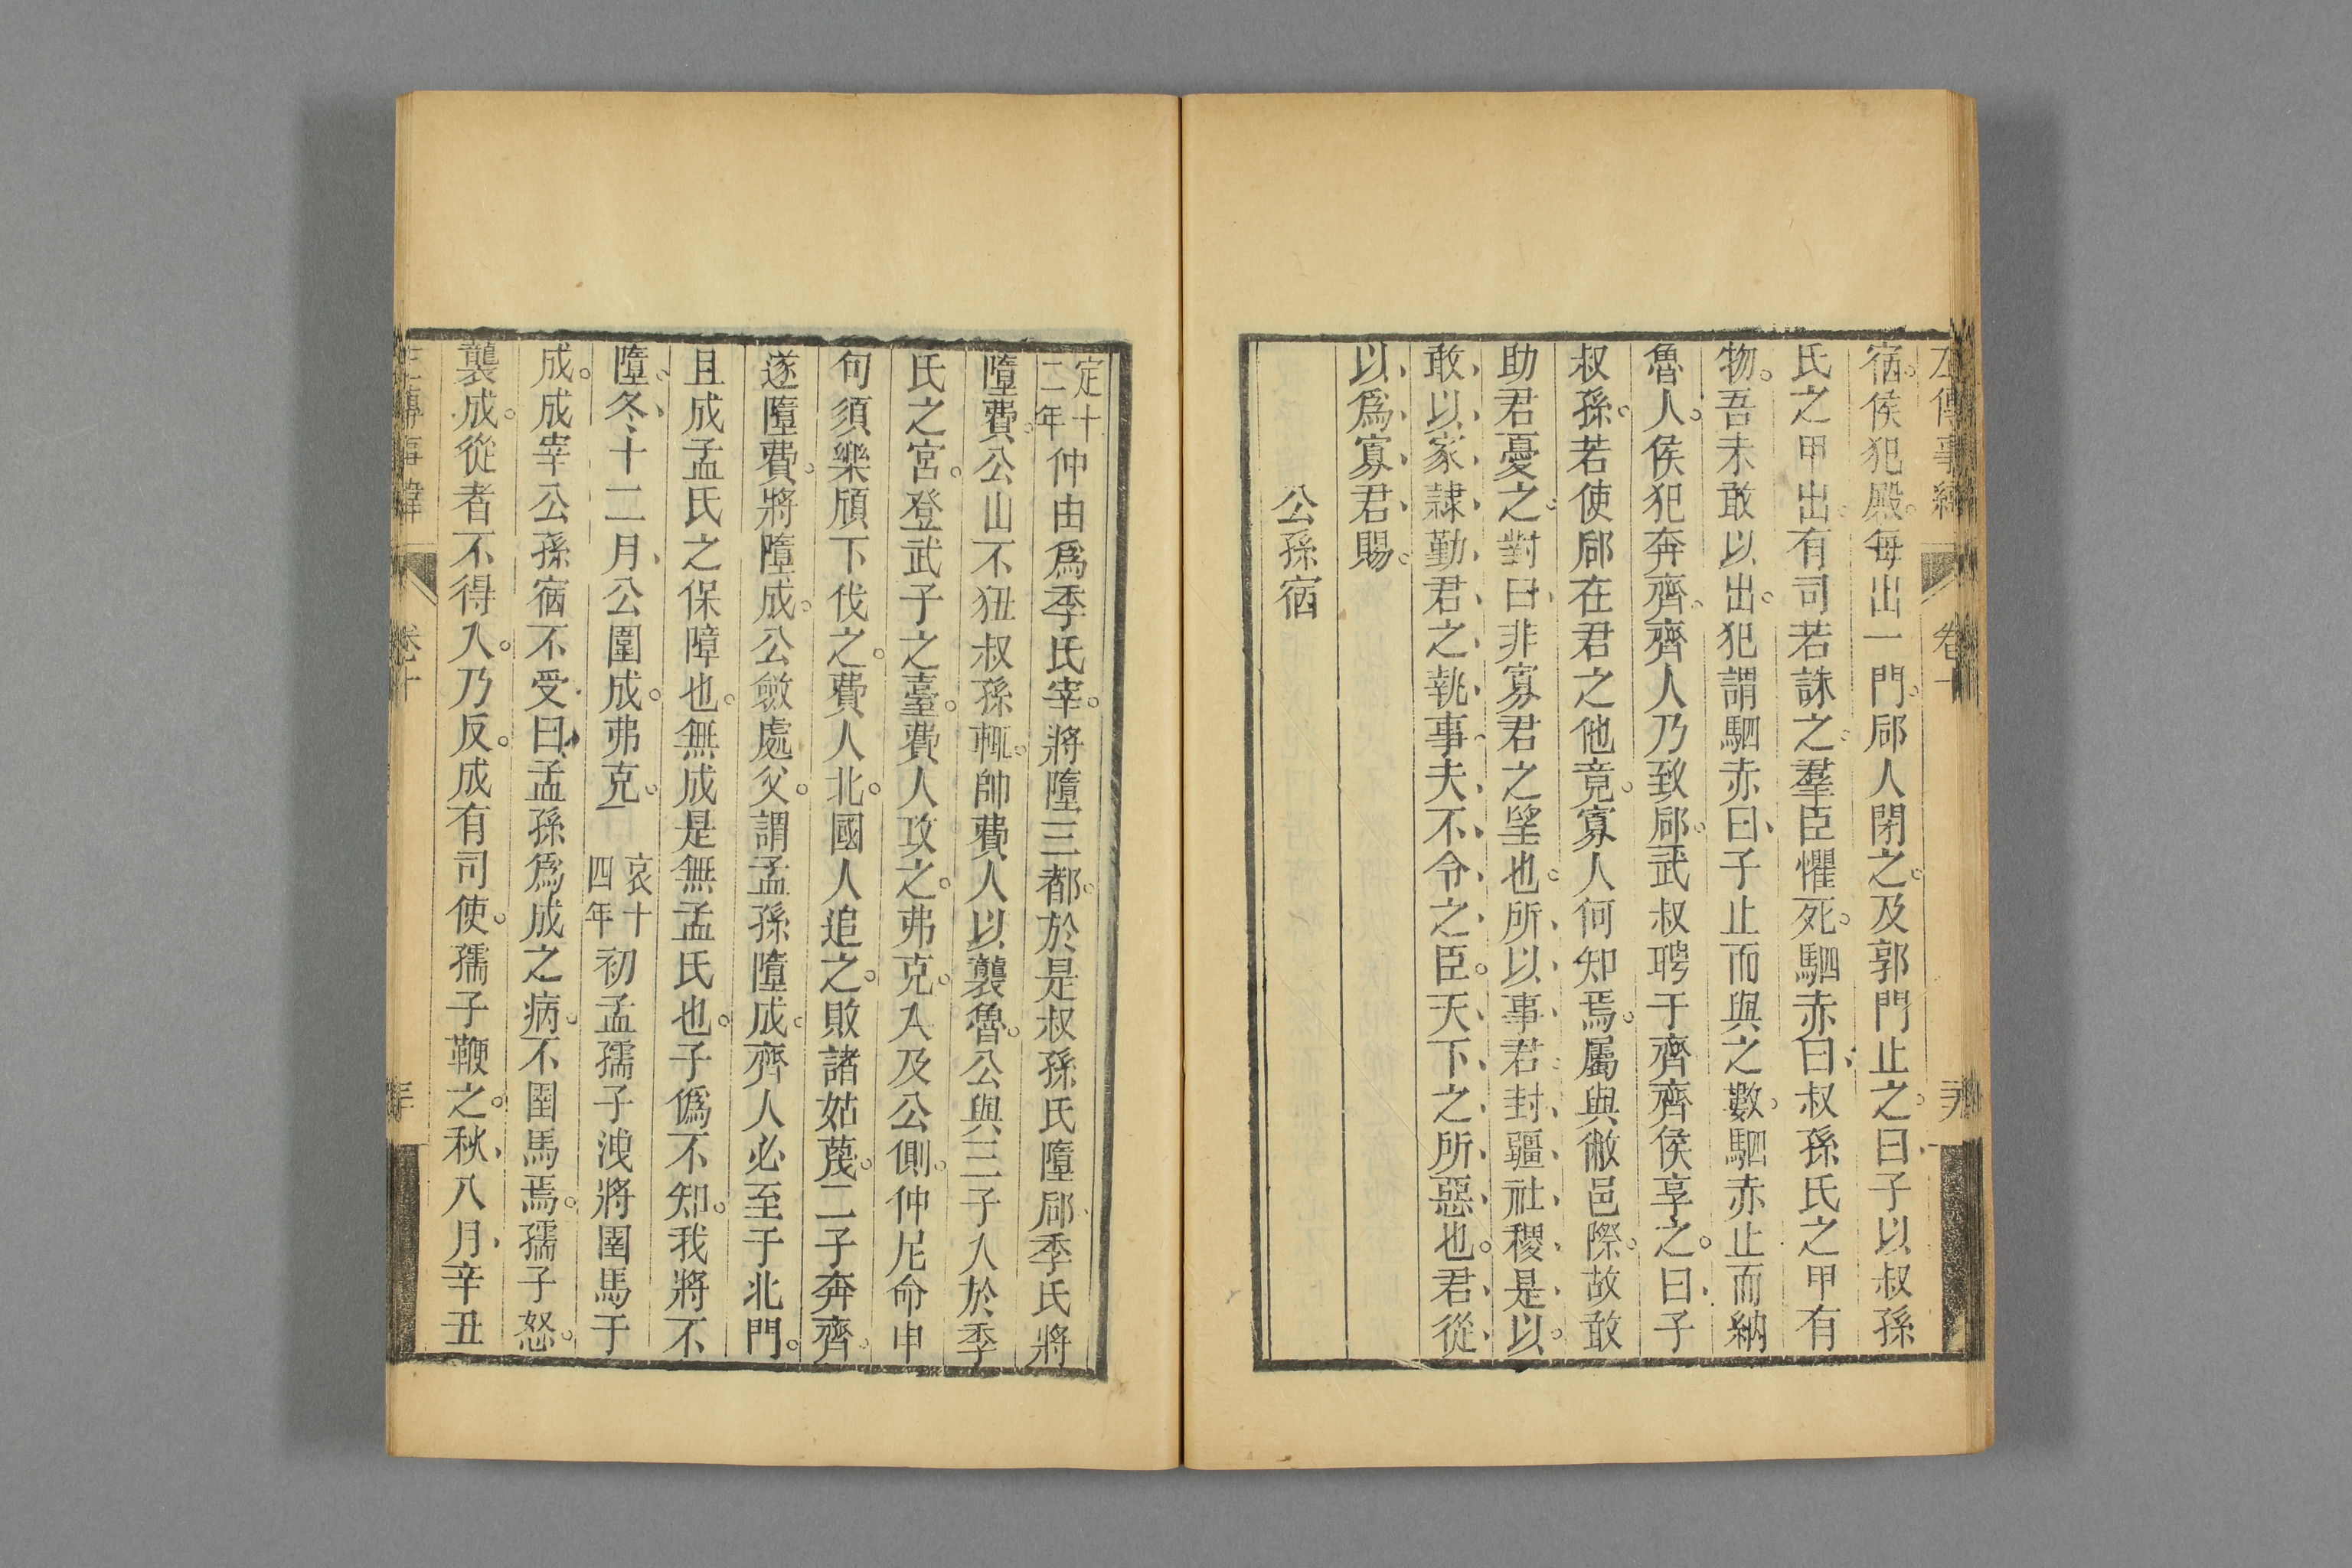 宿侯犯殿每出一門郈人閉之及郭門止之曰子以叔孫
氏之甲出有司若誅之羣臣懼死駟赤曰叔孫氏之甲有
物吾未敢以出犯謂駟赤曰子止而與之數駟赤止而納
魯人侯犯奔齊齊人乃致郈武叔聘于齊齊侯享之曰子
叔孫若使郈在君之他竟寡人何知焉屬與敝邑際故敢
助君憂之對曰非寡君之望也所以事君封疆社稷是以
敢以家隷勤君之執事夫不令之臣天下之所惡也君從
以爲寡君賜
公孫宿
定十二年仲由爲季氏宰將墮三都於是叔孫氏墮郈季氏將
墮費公山不狃叔孫輒帥費人以襲魯公與三子入於季
氏之宮登武子之臺費人攻之弗克入及公側仲尼命申
句須樂頎下伐之費人北國人追之敗諸姑蔑二子奔齊
遂墮費將墮成公斂處父謂孟孫墮成齊人必至于北門
且成孟氏之保障也無成是無孟氏也子僞不知我將不
墮冬十二月公圍成弗克 哀十四年初孟孺子洩將圉馬于
成成宰公孫宿不受曰孟孫爲成之病不圉馬焉孺子怒
襲成從者不得入乃反成有司使孺子鞭之秋八月辛丑